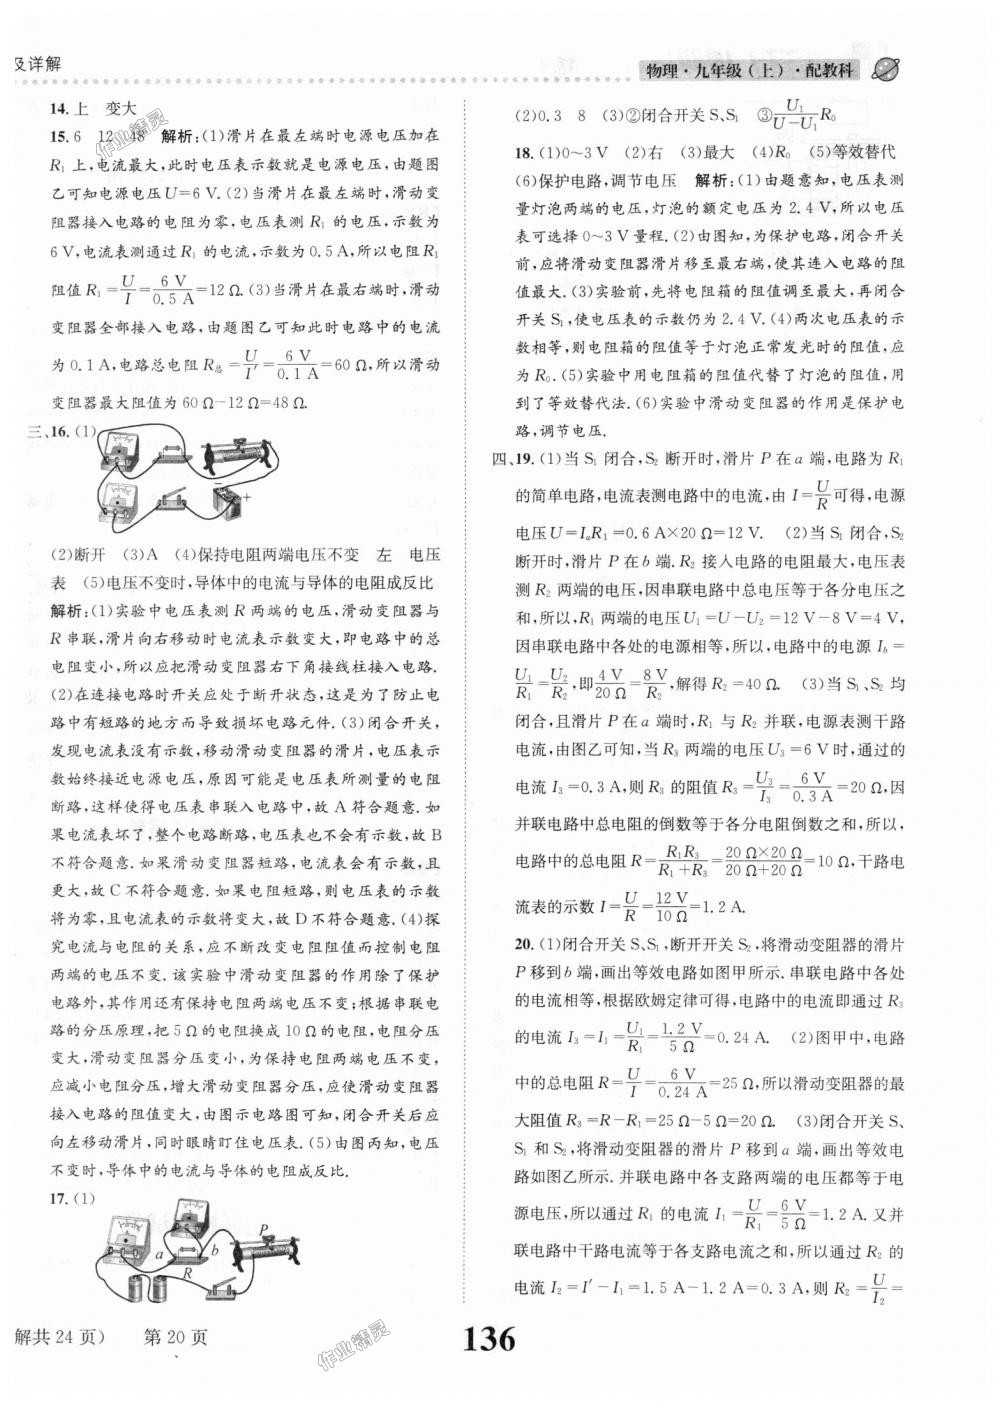 及详解
物理·九年级(上)·配教科
14.上 变大
15.6 12 48 解析:(1)滑片在最左端时电源电压加在
R₁上,电流最大,此时电压表示数就是电源电压,由题图
乙可知电源电压U=6 V.(2)当滑片在最左端时,滑动变
阻器接入电路的电阻为零,电压表测R₁的电压,示数为
6 V,电流表测通过R₁的电流,示数为0.5 A,所以电阻R₁
阻值R₁=U/I=6 V/0.5 A=12 Ω.(3)当滑片在最右端时,滑动
变阻器全部接入电路,由题图乙可知此时电路中的电流
为0.1 A,电路总电阻R总=U/I′=6 V/0.1 A=60 Ω,所以滑动
变阻器最大阻值为60 Ω-12 Ω=48 Ω.
三、16.(1)
- +
(2)断开 (3)A (4)保持电阻两端电压不变 左 电压
表 (5)电压不变时,导体中的电流与导体的电阻成反比
解析:(1)实验中电压表测R两端的电压,滑动变阻器与
R串联,滑片向右移动时电流表示数变大,即电路中的总
电阻变小,所以应把滑动变阻器右下角接线柱接入电路.
(2)在连接电路时开关应处于断开状态,这是为了防止电
路中有短路的地方而导致损坏电路元件.(3)闭合开关,
发现电流表没有示数,移动滑动变阻器的滑片,电压表示
数始终接近电源电压,原因可能是电压表所测量的电阻
断路,这样使得电压表串联入电路中,故A符合题意.如
果电流表坏了,整个电路断路,电压表也不会有示数,故B
不符合题意.如果滑动变阻器短路,电流表会有示数,且
更大,故C不符合题意.如果电阻短路,则电压表的示数
将为零,且电流表的示数将变大,故D不符合题意.(4)探
究电流与电阻的关系,应不断改变电阻阻值而控制电阻
两端的电压不变.该实验中滑动变阻器的作用除了保护
电路外,其作用还有保持电阻两端电压不变;根据串联电
路的分压原理,把5 Ω的电阻换成10 Ω的电阻,电阻分压
变大,滑动变阻器分压变小,为保持电阻两端电压不变,
应减小电阻分压,增大滑动变阻器分压,应使滑动变阻器
接入电路的阻值变大,由图示电路图可知,闭合开关后应
向左移动滑片,同时眼睛盯住电压表.(5)由图丙知,电压
不变时,导体中的电流与导体的电阻成反比.
17.(1)
a b P
R
(2)0.3 8 (3)②闭合开关S、S₁ ③U₁/(U-U₁)R₀
18.(1)0~3 V (2)右 (3)最大 (4)R₀ (5)等效替代
(6)保护电路,调节电压 解析:(1)由题意知,电压表测
量灯泡两端的电压,灯泡的额定电压为2.4 V,所以电压
表可选择0~3 V量程.(2)由图知,为保护电路,闭合开关
前,应将滑动变阻器滑片移至最右端,使其连入电路的阻
值最大.(3)实验前,先将电阻箱的阻值调至最大,再闭合
开关S₁,使电压表的示数仍为2.4 V.(4)两次电压表的示
数相等,则电阻箱的阻值等于灯泡正常发光时的阻值,应
为R₀.(5)实验中用电阻箱的阻值代替了灯泡的阻值,用
到了等效替代法.(6)实验中滑动变阻器的作用是保护电
路,调节电压.
四、19.(1)当S₁闭合,S₂断开时,滑片P在a端,电路为R₁
的简单电路,电流表测电路中的电流,由I=U/R可得,电源
电压U=IₐR₁=0.6 A×20 Ω=12 V. (2)当S₁闭合,S₂
断开时,滑片P在b端.R₂接入电路的电阻最大,电压表
测R₂两端的电压,因串联电路中总电压等于各分电压之
和,所以,R₁两端的电压U₁=U-U₂=12 V-8 V=4 V,
因串联电路中各处的电流相等,所以,电路中的电流 I_b=
U₁/R₁=U₂/R₂,即4 V/20 Ω=8 V/R₂,解得R₂=40 Ω. (3)当S₁、S₂均
闭合,且滑片P在a端时,R₁与R₂并联,电源表测干路
电流,由图乙可知,当R₃两端的电压U₃=6 V时,通过的
电流I₃=0.3 A,则R₃的阻值R₃=U₃/I₃=6 V/0.3 A=20 Ω,因
并联电路中总电阻的倒数等于各分电阻倒数之和,所以,
电路中的总电阻R=R₁R₃/(R₁+R₃)=20 Ω×20 Ω/(20 Ω+20 Ω)=10 Ω,干路电
流表的示数I=U/R=12 V/10 Ω=1.2 A.
20.(1)闭合开关S、S₁,断开开关S₂,将滑动变阻器的滑片
P移到b端,画出等效电路如图甲所示.串联电路中各处
的电流相等,根据欧姆定律可得,电路中的电流即通过R₃
的电流I₃=I₁=U₁/R₁=1.2 V/5 Ω=0.24 A. (2)图甲中,电路
中的总电阻R=U/I=6 V/0.24 A=25 Ω,所以滑动变阻器的最
大阻值R₃=R-R₁=25 Ω-5 Ω=20 Ω. (3)闭合开关S、
S₁和S₂,将滑动变阻器的滑片P移到a端,画出等效电
路如图乙所示.并联电路中各支路两端的电压都等于电
源电压,所以通过R₁的电流I₁=U/R₁=6 V/5 Ω=1.2 A.又并
联电路中干路电流等于各支路电流之和,所以通过R₂的
电流I₂=I′-I₁=1.5 A-1.2 A=0.3 A,则R₂=U/I₂=
解共24页) 第20页
136
作业精灵
作业精灵